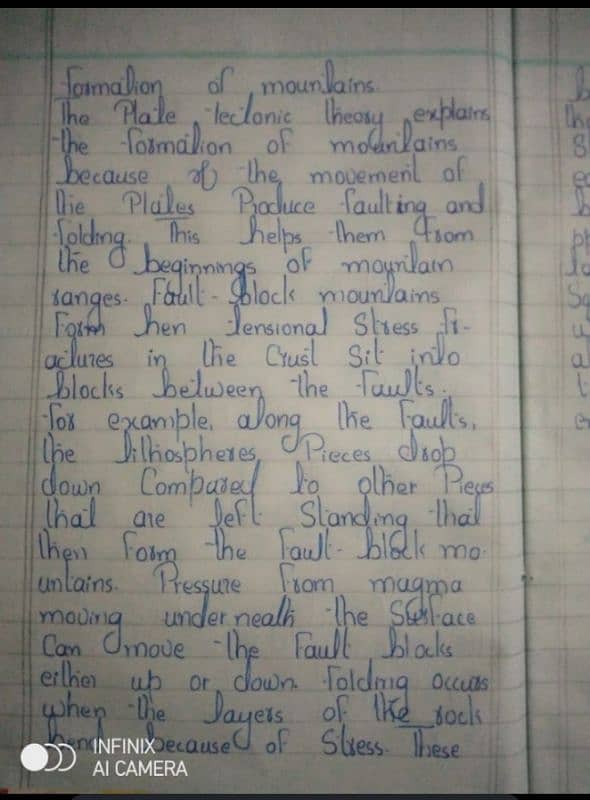 formation of mountains.
The Plate tectonic theory explains
the formation of mountains
because of the movement of
the Plates Produce faulting and
folding. This helps them from
the beginnings of mountain
ranges. Fault-block mountains
Form hen Tensional Stress fr-
actures in the Crust Sit into
blocks between the faults.
for example, along the Faults,
the lithospheres Pieces drop
down Compared to other Pieces
that are left Standing that
then form the fault-block mo-
untains. Pressure from magma
moving underneath the Surface
Can move the Fault blocks
either up or down. folding occurs
when the layers of the rock
bend because of Stress. These
INFINIX
AI CAMERA